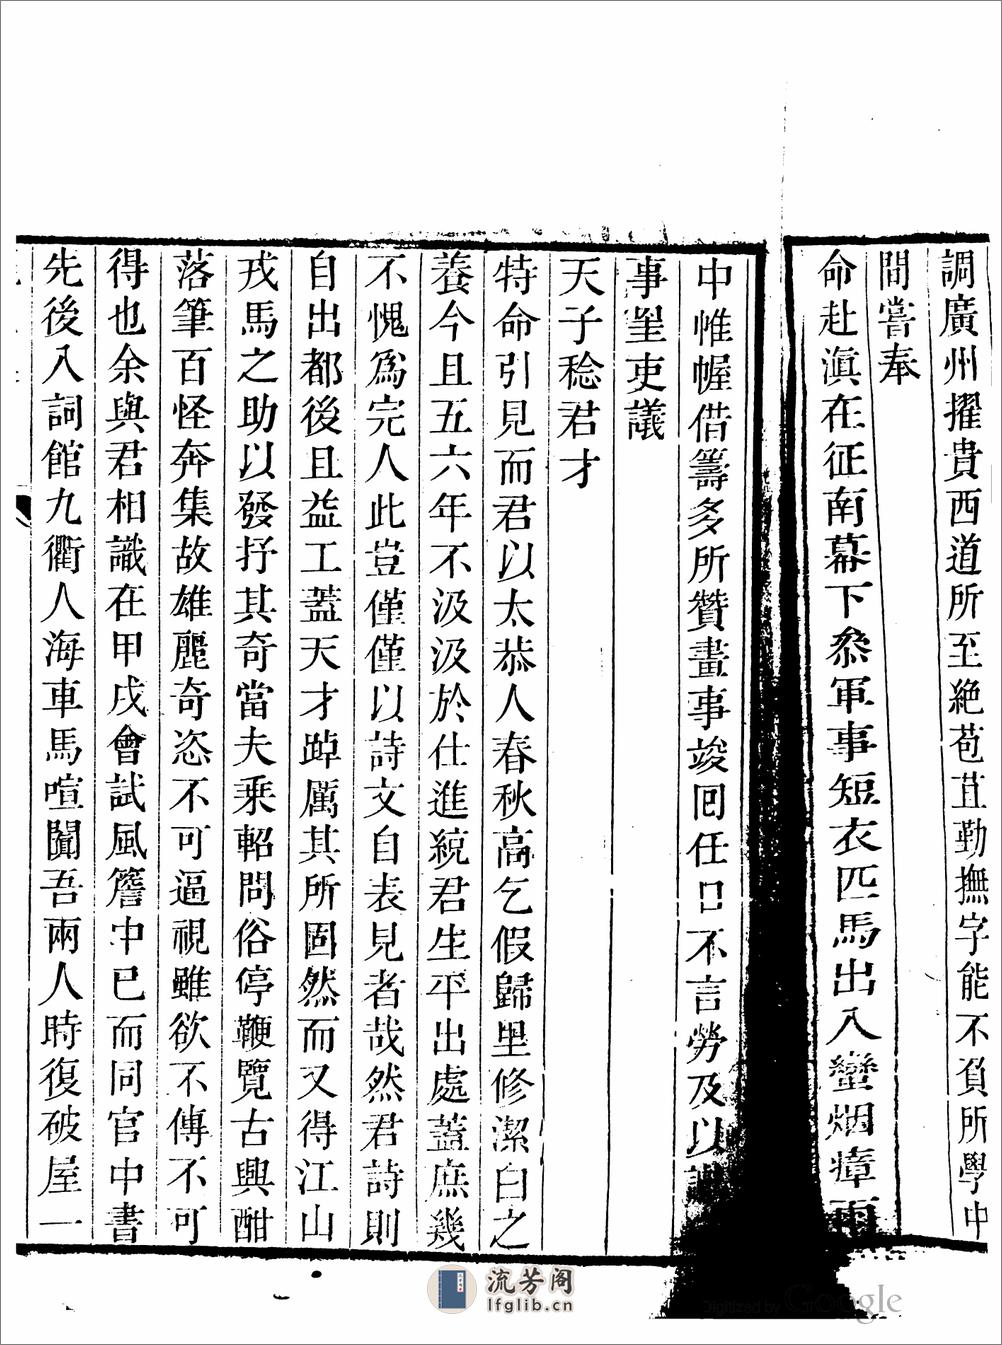 調廣州擢貴西道所至絶苞苴勤撫字能不負所學中
間嘗奉
命赴滇在征南幕下叅軍事短衣匹馬出入蠻烟瘴雨
中帷幄借籌多所贊畫事竣囘任口不言勞及以
事罣吏議
天子稔君才
特命引見而君以太恭人春秋高乞假歸里修潔白之
養今且五六年不汲汲於仕進統君生平出處蓋庶幾
不愧爲完人此豈僅僅以詩文自表見者哉然君詩則
自出都後且益工蓋天才踔厲其所固然而又得江山
戎馬之助以發抒其奇當夫乘軺問俗停鞭覽古興酣
落筆百怪奔集故雄麗奇恣不可逼視雖欲不傳不可
得也余與君相識在甲戌會試風簷中已而同官中書
先後入詞館九衢人海車馬喧闐吾兩人時復破屋一
流芳阁
lfglib.cn
Digitized by Google